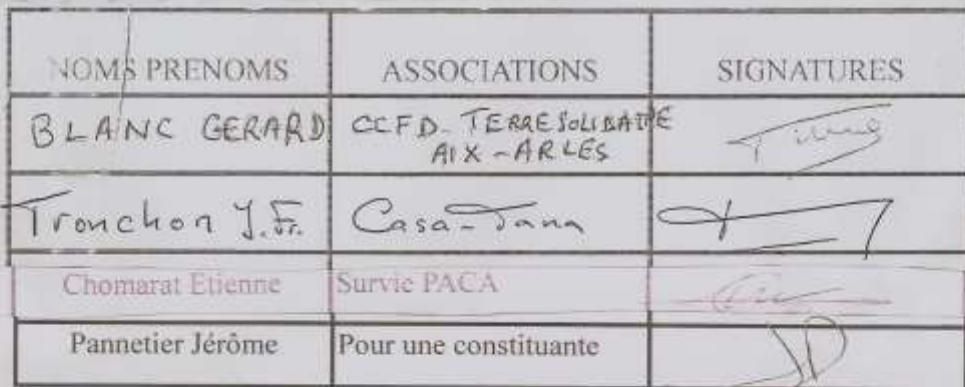 NOMS PRENOMS ASSOCIATIONS SIGNATURES
BLANC GERARD CCFD-TERRE SOLIDAIRE
AIX-ARLES
Tronchon J.Fr. Casa-Tana
Chomarat Etienne Survie PACA
Pannetier Jérôme Pour une constituante
JP